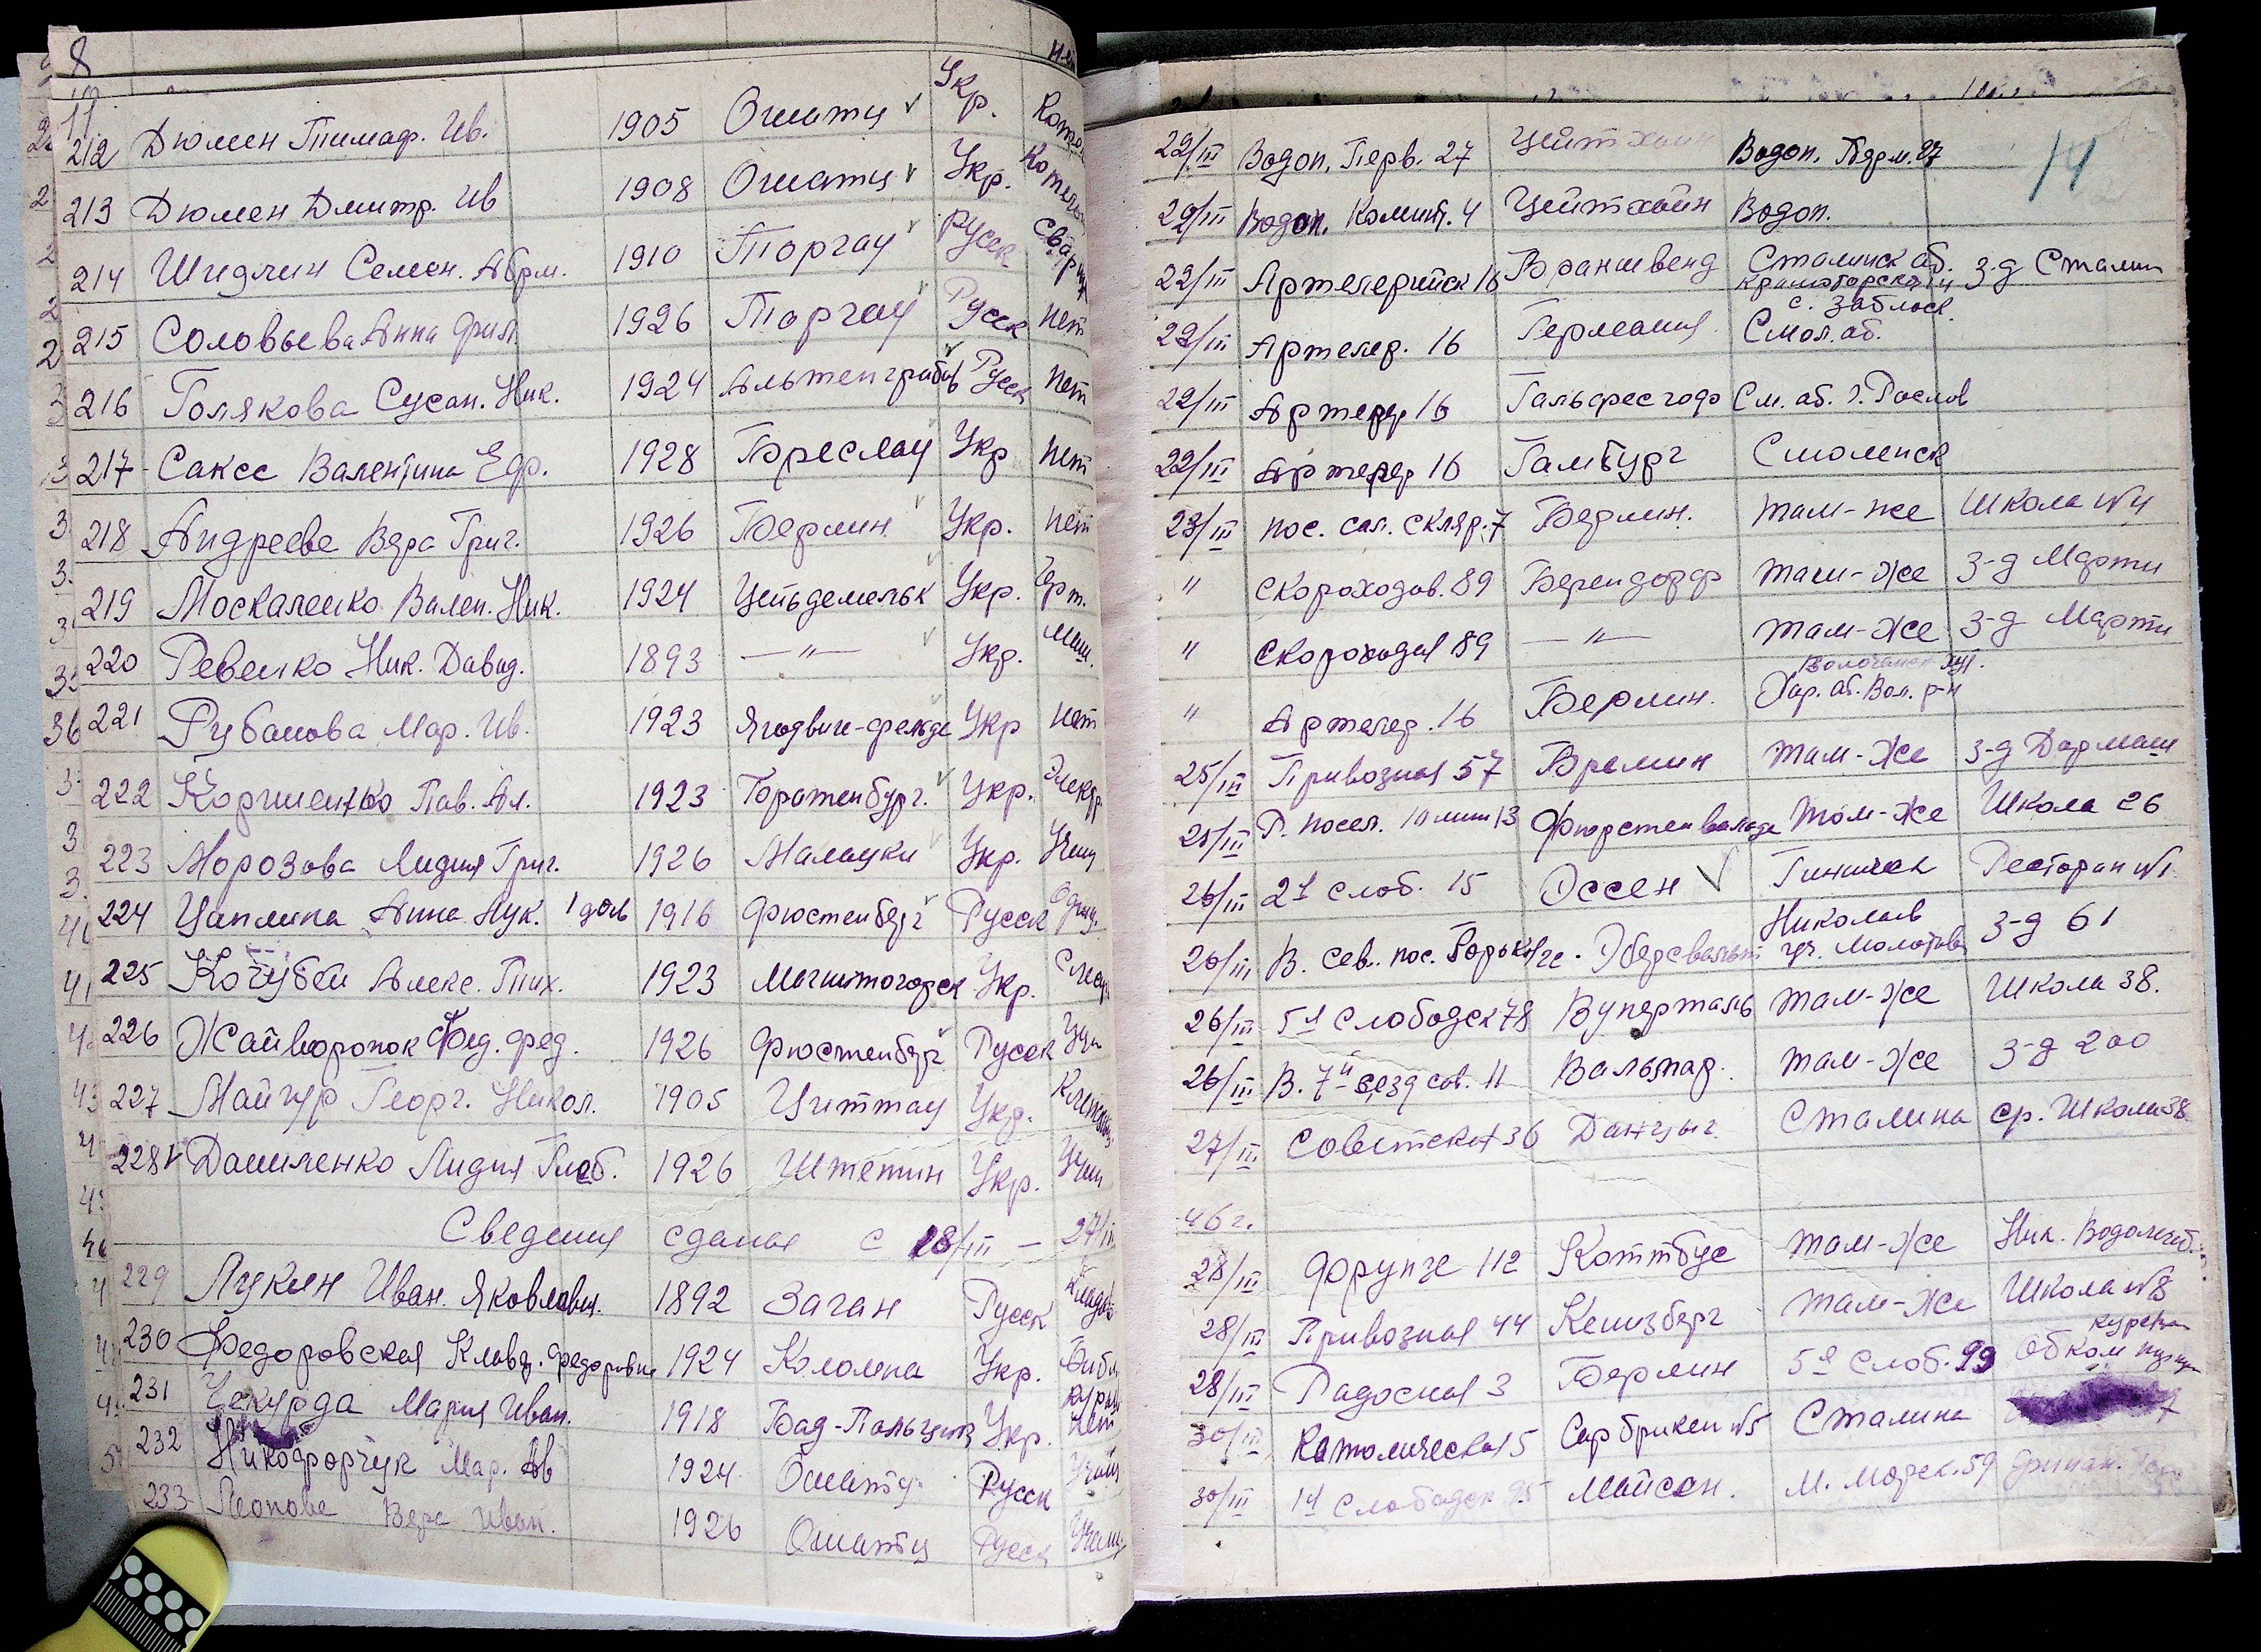 8
212 Дюмен Тимоф. Ив. 1905 Ошатц Укр.
213 Дюмен Дмитр. Ив 1908 Ошатц Укр.
214 Шидлин Семен. Абрм. 1910 Торгау Русск
215 Соловьева Анна Фил. 1926 Торгау Русск нет
216 Полякова Сусан. Ник. 1924 Русск нет
217 Саксе Валентина Еф. 1928 Бреслау Укр нет
218 Андреева Вера Григ. 1926 Берлин Укр. нет
219 Москаленко Вален. Ник. 1924 Укр.
220 Ревенко Ник. Давид. 1893 —〃— Укр. Маш.
221 Рубанова Мар. Ив. 1923 Укр нет
222 Пав. Ал. 1923 Укр. Электр.
223 Морозова Лидия Григ. 1926 Укр. Учащ
224 Цаплина Анна Лук. 1 дочь 1916 Фюстенберг Русск
225 Кочубей Алекс. Тих. 1923 Магнитогорск Укр. Слесар
226 Жайворонок Фед. Фед. 1926 Фюстенберг Русск Учи
227 Майгур Георг. Никол. 1905 Циттау Укр.
228 Даниленко Лидия Глеб. 1926 Штетин Укр. Учащ
Сведения сданая с 18/III — 27/III
229 Лукин Иван. Яковлевич. 1892 Заган Русск
230 Федоровская Клавд. Федоровна 1924 Коломна Укр. Библ
231 Чекурда Мария Иван. 1918 Бад-Польцин Укр.
232 Никофорчук Мар. Ав 1924 Ошатц Русск
233 Леонова Вера Иван. 1926 Ошатц Русск
14
22/III Водоп. Перв. 27 Цейтхайн Водоп. Перм. 27
22/III Водоп. Комит. 4 Цейтхайн Водоп.
22/III Артелерийск 16 Сталинск об. з-д Сталин
22/III Артелер. 16 Германия Смол. об.
22/III Артелер 16 См. об. г. Рослов
22/III Артелер 16 Гамбург Смоленск
23/III пос. сол. скляр. 7 Берлин. там-же Школа №4
〃 Скороходов. 89 Берендорф там-же з-д Марти
〃 Скороходов 89 —〃— там-же з-д Марти
〃 Артелер. 16 Берлин. Хар. об. Вол. р-н
25/III Привозная 57 Бремин там-же з-д Дормаш
25/III Р. посел. 10 лин 13 Фюрстенвальде там-же Школа 26
26/III 2я слоб. 15 Эссен Геническ Ресторан №1
26/III В. Сев. пос. Горького Эберсвальт Николаев ул. Молотова з-д 61
26/III 5я Слободск 78 Вуперталь там-же Школа 38.
26/III В. 7й сезд сов. 11 Вальпар. там-же з-д 200
27/III Советская 36 Данцыг. Сталина ср. Школа 38
46 г.
28/III Фрунзе 112 Коттбус там-же Ник. Водолечеб.
28/III Привозная 44 Кенизберг там-же Школа №8
28/III Радосная 3 Берлин 5я слоб. 99 Обком
30/III Католическая 5 Сарбрикен №5 Сталина
30/III 1я Слободск 95 Майсен. М. Морск. 59